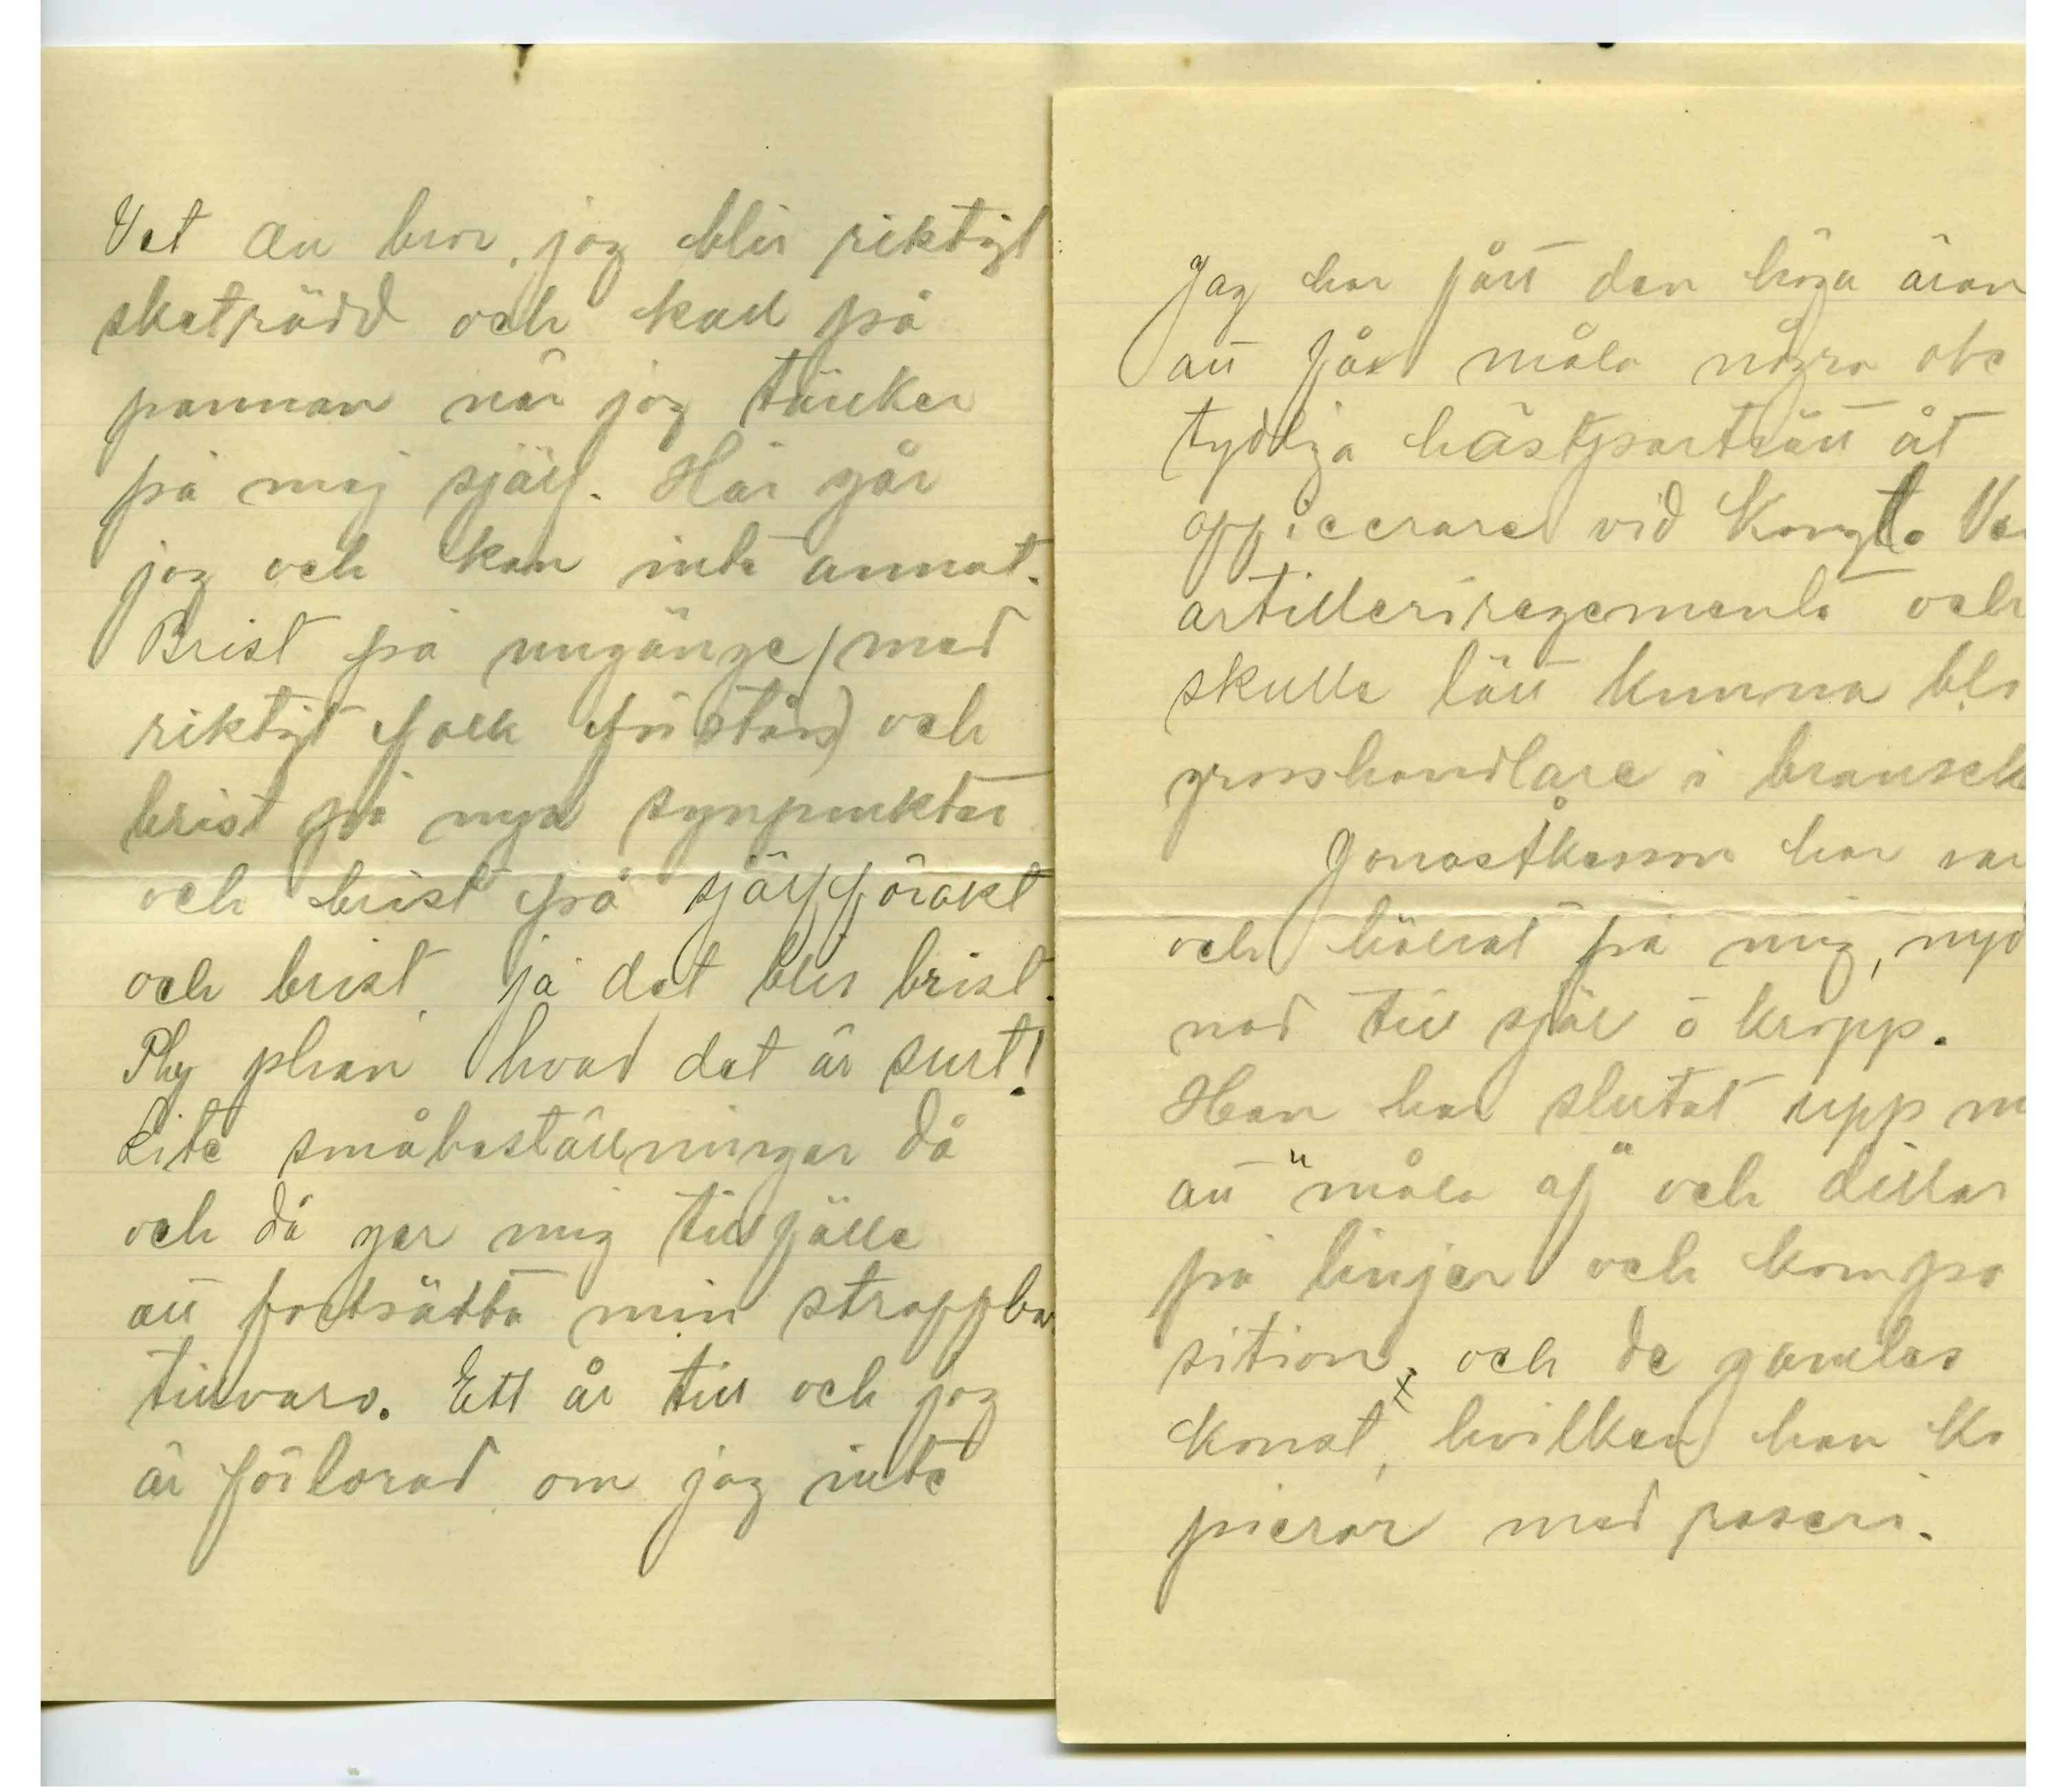 Vet du bror, jag blir riktigt
sketrädd och kall på
pannan när jag tänker
på mig själf. Här går
jag och kan inte annat.
Brist på umgänge (med
riktigt folk förstås) och
brist på nya synpunkter
och brist på själfförakt
och brist, ja det blir brist.
Phy phan, hvad det är surt!
Lite småbeställningar då
och då ger mig tillfälle
att fortsätta min straffba
tillvaro. Ett år till och jag
är förlorad om jag inte
Jag har fått den höga äran
att få måla några obe
tydliga hästporträtt åt
officerare vid Kongl. Ve
artilleriregemente och
skulle lätt kunna bli
grosshandlare i bransch
Jonas Åkesson har var
och hälsat på mig, nyd
nad till själ o kropp.
Han har slutat upp m
att "måla af" och dillar
på linjer och kompo
sition, och de gamles
konst, hvilken han ko
pierar med raseri.